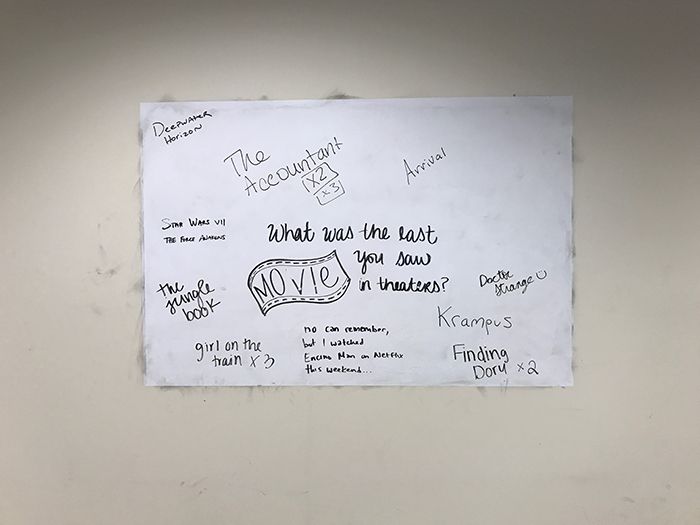 Deepwater
Horizon
The
Accountant
x2
x3
Arrival
Star Wars VII
The Force Awakens
What was the last
MOVIE
you saw
in theaters?
the
jungle
book
Doctor
Strange
Krampus
girl on the
train x3
no can remember,
but I watched
Encino Man on Netflix
this weekend...
Finding
Dory x2